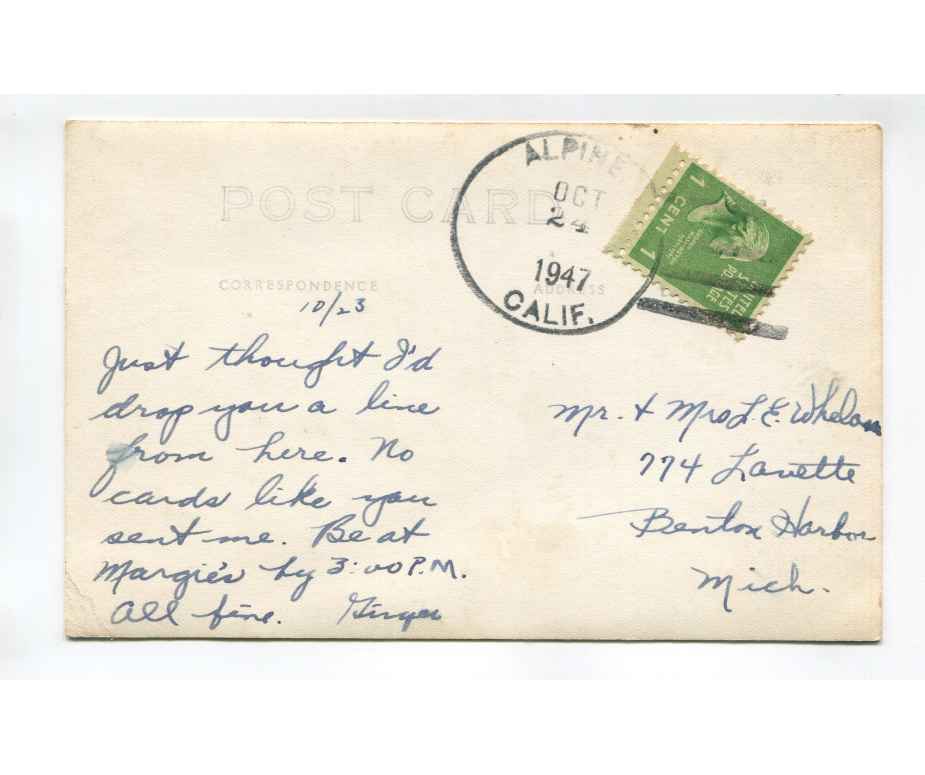 POST CARD
ALPINE
OCT
24
1947
CALIF.
1 CENT 1
UNITED
STATES
POSTAGE
CORRESPONDENCE
ADDRESS
10/23
Just thought I'd
drop you a line
from here. No
cards like you
sent me. Be at
Margie's by 3:00 P.M.
All fine. Ginger
Mr. + Mrs L. E. Whelan
774 Lavette
Benton Harbor
Mich.